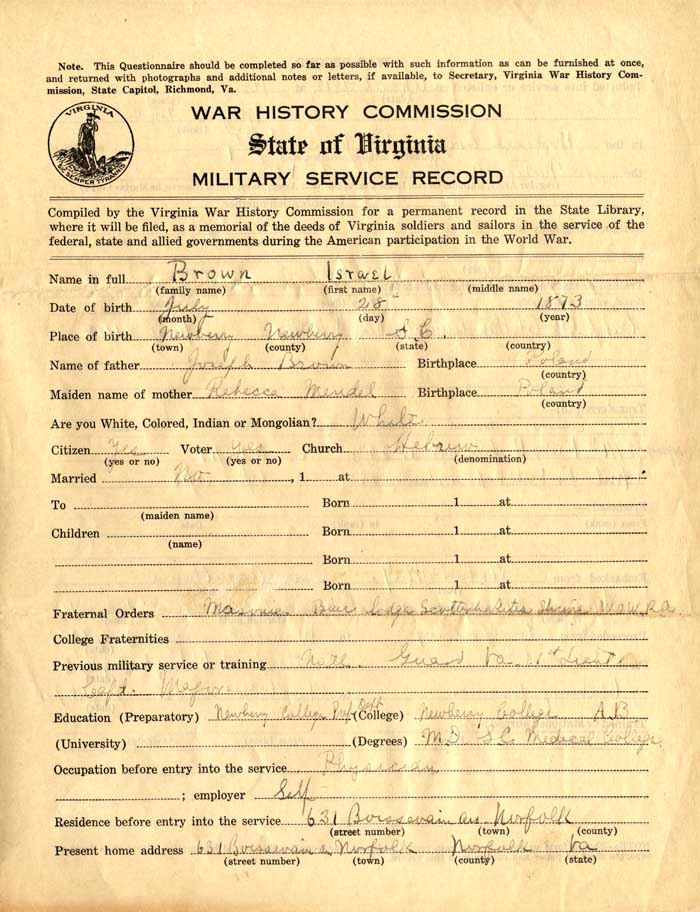 Note. This Questionnaire should be completed so far as possible with such information as can be furnished at once,
and returned with photographs and additional notes or letters, if available, to Secretary, Virginia War History Com-
mission, State Capitol, Richmond, Va.
VIRGINIA
SIC SEMPER TYRANNIS
WAR HISTORY COMMISSION
State of Virginia
MILITARY SERVICE RECORD
Compiled by the Virginia War History Commission for a permanent record in the State Library,
where it will be filed, as a memorial of the deeds of Virginia soldiers and sailors in the service of the
federal, state and allied governments during the American participation in the World War.
Name in full Brown Israel
(family name) (first name) (middle name)
Date of birth July 28 1873
(month) (day) (year)
Place of birth Newberry Newberry S.C.
(town) (county) (state) (country)
Name of father Joseph Brown Birthplace Poland
(country)
Maiden name of mother Rebecca Mendel Birthplace Poland
(country)
Are you White, Colored, Indian or Mongolian? White
Citizen Yes Voter Yes Church Hebrew
(yes or no) (yes or no) (denomination)
Married No , 1 at
To Born 1 at
(maiden name)
Children Born 1 at
(name)
Born 1 at
Born 1 at
Fraternal Orders Masonic Blue Lodge Scottish Rites Shrine W.O.W. R.A.
College Fraternities
Previous military service or training Natl. Guard Va 1st Lieut.
Capt. Major
Education (Preparatory) Newberry College Prep Dept (College) Newberry College A.B
(University) (Degrees) M.D. S.C. Medical College
Occupation before entry into the service Physician
; employer Self
Residence before entry into the service 631 Boissevain av. Norfolk
(street number) (town) (county)
Present home address 631 Boissevain a Norfolk Norfolk Va
(street number) (town) (county) (state)